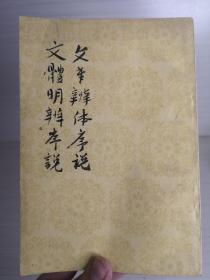 文章辨体序说
文體明辨序説